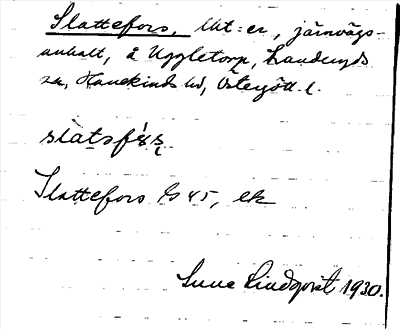 Slattefors, Mt:er, järnvägs-
anhalt, å Uggletorp, Landeryds
sn, Hanekinds hd, Östergötl. l.
Slattefors Gs 45, ek
Sune Lindqvist 1930.